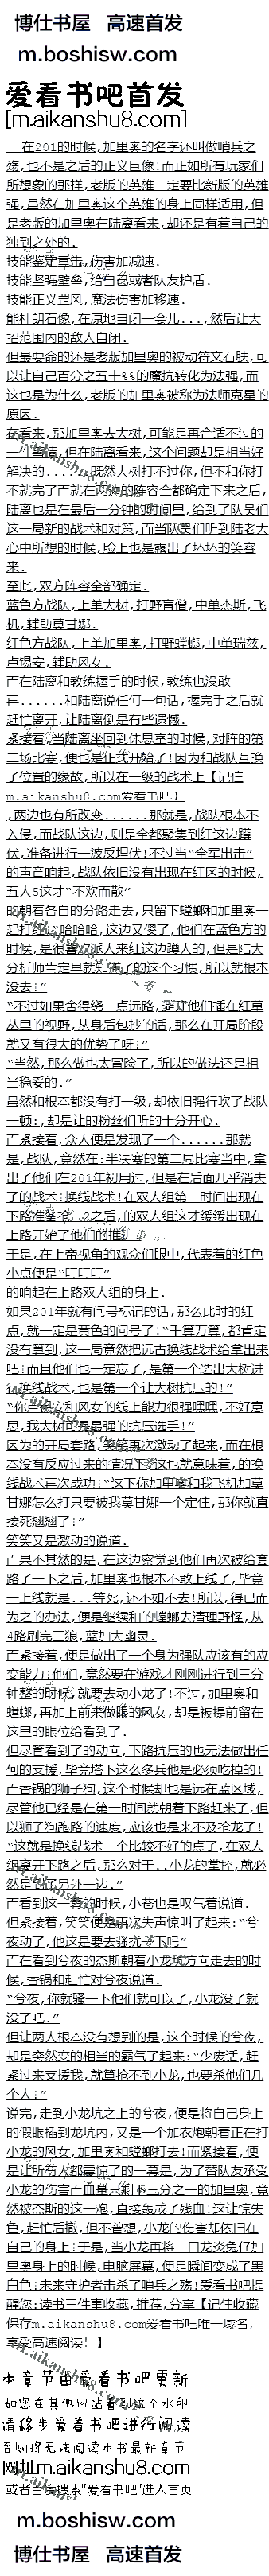 博仕书屋 高速首发
m.boshisw.com
爱看书吧首发
[m.aikanshu8.com]
在201的时候,加里奥的名字还叫做哨兵之
殇,也不是之后的正义巨像!而正如所有玩家们
所想象的那样,老版的英雄一定要比新版的英雄
强,虽然在加里奥这个英雄的身上同样适用,但
是老版的加里奥在陆离看来,却还是有着自己的
独到之处的.
技能坚定重击,伤害加减速.
技能坚强壁垒,给自己或者队友护盾.
技能正义罡风,魔法伤害加移速.
能杜朗石像,在原地自闭一会儿...,然后让大
范围内的敌人自闭.
但最要命的还是老版加里奥的被动符文石肤,可
以让自己百分之五十%%的魔抗转化为法强,而
这也是为什么,老版的加里奥被称为法师克星的
原因.
在看来,那加里奥去大树,可能是再合适不过的
一件事情,但在陆离看来,这个问题却是相当好
解决的....既然大树打不过你,但不和你打
不就完了
陆离也是在最后一分钟的时间里,给到了队员们
这一局新的战术和对策,而当队员们听到陆老大
心中所想的时候,脸上也是露出了坏坏的笑容
来.
至此,双方阵容全部确定.
蓝色方战队,上单大树,打野盲僧,中单杰斯,飞
机,辅助莫甘娜.
红色方战队,上单加里奥,打野螳螂,中单瑞兹,
卢锡安,辅助风女.
而在陆离和教练握手的时候,教练也没敢
再......和陆离说任何一句话,握完手之后就
赶忙离开,让陆离倒是有些遗憾.
紧接着,当陆离坐回到休息室的时候,对阵的第
二场比赛,便也是正式开始了!因为和战队互换
了位置的缘故,所以在一级的战术上【记住
m.aikanshu8.com爱看书吧】
,两边也有所改变......那就是,战队根本不
入侵,而战队这边,则是全都聚集到红这边蹲
伏,准备进行一波反埋伏!不过当“全军出击”
的声音响起,战队依旧没有出现在红区的时候,
五人5这才“不欢而散”
的朝着各自的分路走去,只留下螳螂和加里奥一
起打红.“哈哈哈,这边又傻了,他们在蓝色方的
时候,是很喜欢派人来红这边蹲人的,但是陆大
分析师肯定早就知道了的这个习惯,所以就根本
没去;”
“不过如果舍得绕一点远路,避开他们插在红草
丛里的视野,从身后包抄的话,那么在开局阶段
就又有很大的优势了呀;”
“当然,那么做也太冒险了,所以的做法还是相
当稳妥的.”
虽然和根本都没有打一级,却依旧强行吹了战队
一顿;,却是让的粉丝们听的十分开心.
而紧接着,众人便是发现了一个......那就
是,战队,竟然在:半决赛的第二局比赛当中,拿
出了他们在201年初用过,但是在后面几乎消失
了的战术:换线战术!在双人组第一时间出现在
的双人组这才缓缓出现在
上路开始了他们的推进
于是,在上帝视角的观众们眼中,代表着的红色
小点便是“
的响起在上路双人组的身上.
如果201年就有问号标记的话,那么此时的红
点,就一定是黄色的问号了!“千算万算,都肯定
没有算到,这一局竟然把远古换线战术给拿出来
吧;而且他们也一定忘了,是第一个选出大树进
行换线战术,也是第一个让大树抗压的!”
“你卢锡安和风女的线上能力很强嘿嘿,不好意
思,我大树可是最强的抗压选手!”
因为的开局套路,笑笑再次激动了起来,而在根
本没有反应过来的情况下这也就意味着,的换
线战术再次成功:“这下你加里奥和我飞机加莫
甘娜怎么打只要被我莫甘娜一个定住,那你就直
接死翘翘了;”
笑笑又是激动的说道.
而果不其然的是,在这边察觉到他们再次被给套
路了一下之后,加里奥也根本不敢上线了,毕竟
一上线就是...等死,还不如不去!所以,得已而
为之的办法,便是继续和的螳螂去清理野怪,从
4路刷完三狼,蓝加大幽灵.
而紧接着,便是做出了一个身为强队应该有的应
变能力;他们,竟然要在游戏才刚刚进行到三分
钟整的时候,就要去动小龙了!不过,加里奥和
螳螂,再加上前来做眼的风女,却是被提前留在
这里的眼位给看到了.
但尽管看到了的动向,下路抗压的也无法做出任
何的支援,毕竟塔下这么多兵他是必须吃掉的!
而香锅的狮子狗,这个时候却也是远在蓝区域,
尽管他已经是在第一时间就朝着下路赶来了,但
以狮子狗跑路的速度,应该也是来不及抢龙了!
“这就是换线战术一个比较不好的点了,在双人
组离开下路之后,那么对于..小龙的掌控,就必
然是到了另外一边.”
而看到这一幕的时候,小苍也是叹气着说道.
但紧接着,笑笑便是再次失声惊叫了起来:“兮
夜动了,他这是要去骚扰一下吗”
而在看到兮夜的杰斯朝着小龙坑方向走去的时
候,香锅和赶忙对兮夜说道.
“兮夜,你就骚一下他们就可以了,小龙没了就
没了吧.”
但让两人根本没有想到的是,这个时候的兮夜,
却是突然变的相当的霸气了起来:“少废话,赶
紧过来支援我,就算抢不到小龙,也要杀他们几
个人;”
说完,走到小龙坑之上的兮夜,便是将自己身上
的假眼插到龙坑内,又是一个加农炮朝着正在打
小龙的风女,加里奥和螳螂打去!而紧接着,便
是让所有人都震惊了的一幕是,为了替队友承受
小龙的伤害而血量只剩下三分之一的加里奥,竟
然被杰斯的这一炮,直接轰成了残血!这让惊失
色,赶忙后撤,但不曾想,小龙的伤害却依旧在
自己的身上;于是,当小龙再将一口龙炎兔仔加
里奥身上的时候,电脑屏幕,便是瞬间变成了黑
白色;未来守护者击杀了哨兵之殇!爱看书吧提
醒您:读书三件事收藏,推荐,分享【记住收藏
保存m.aikanshu8.com爱看书吧唯一域名.
享受高速阅读!】
本章节由爱看书吧更新
如您在其他网站看到这个水印
请移步爱看书吧进行阅读
否则将无法阅读本书最新章节
网址m.aikanshu8.com
或者百度搜索“爱看书吧”进入首页
m.boshisw.com
博仕书屋 高速首发